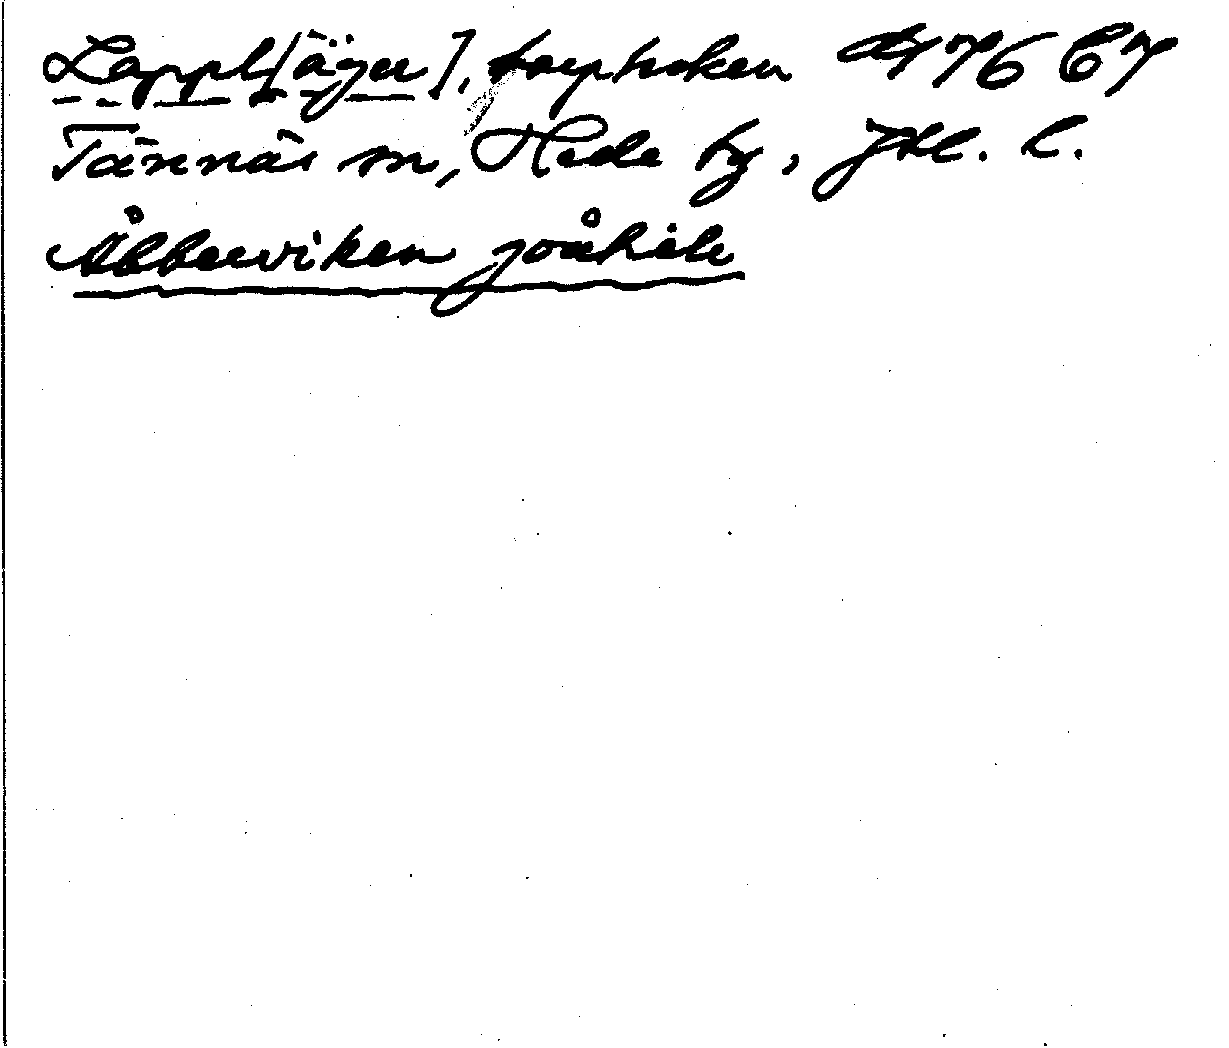 Lappl[äger], torpstoken A 476 67
Tännäs sn, Hede tg, Jtl. l.
Åbberviken joåhkle